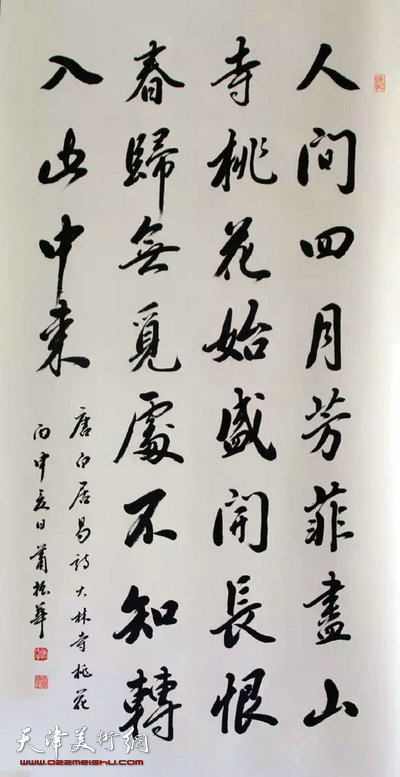 人間四月芳菲盡山
寺桃花始盛開長恨
春歸無覓處不知轉
入此中來
唐白居易詩大林寺桃花
丙申夏日蕭
天津美術網
www.022meishu.com